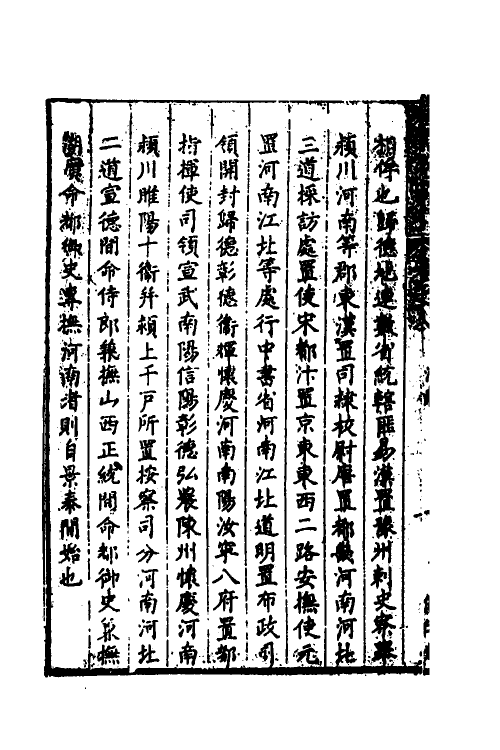 相俘也歸德地連數省統轄匪易漢置豫州刺史察舉
潁川河南等郡東漢置司隸校尉唐置都畿河南河北
三道採訪處置使宋都汴置京東東西二路安撫使元
置河南江北等處行中書省河南江北道明置布政司
領開封歸德彰德衞輝懷慶河南南陽汝寧八府置都
指揮使司領宣武南陽信陽彰德弘農陳州懷慶河南
潁川睢陽十衞幷潁上千戶所置按察司分河南河北
二道宣德間命侍郎兼撫山西正統間命都御史兼撫
湖廣命都御史專撫河南者則自景泰間始也